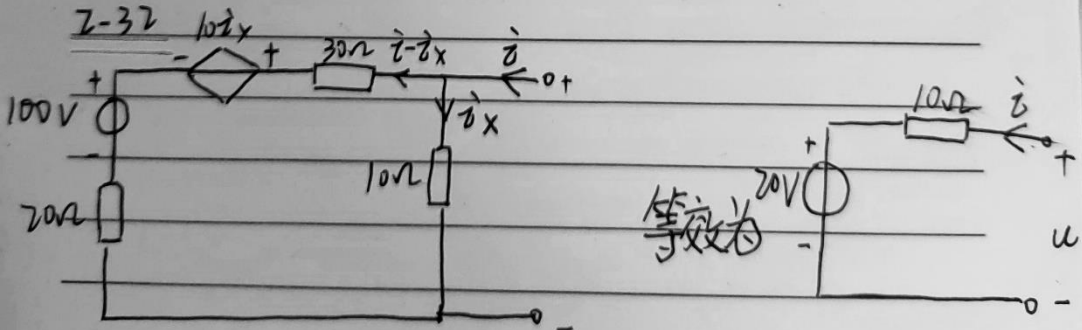 2-32
10ix
- +
30Ω
i-ix
i
+
+
100V
-
ix
10Ω
20Ω
-
等效为
10Ω
i
+
+
20V
-
u
-